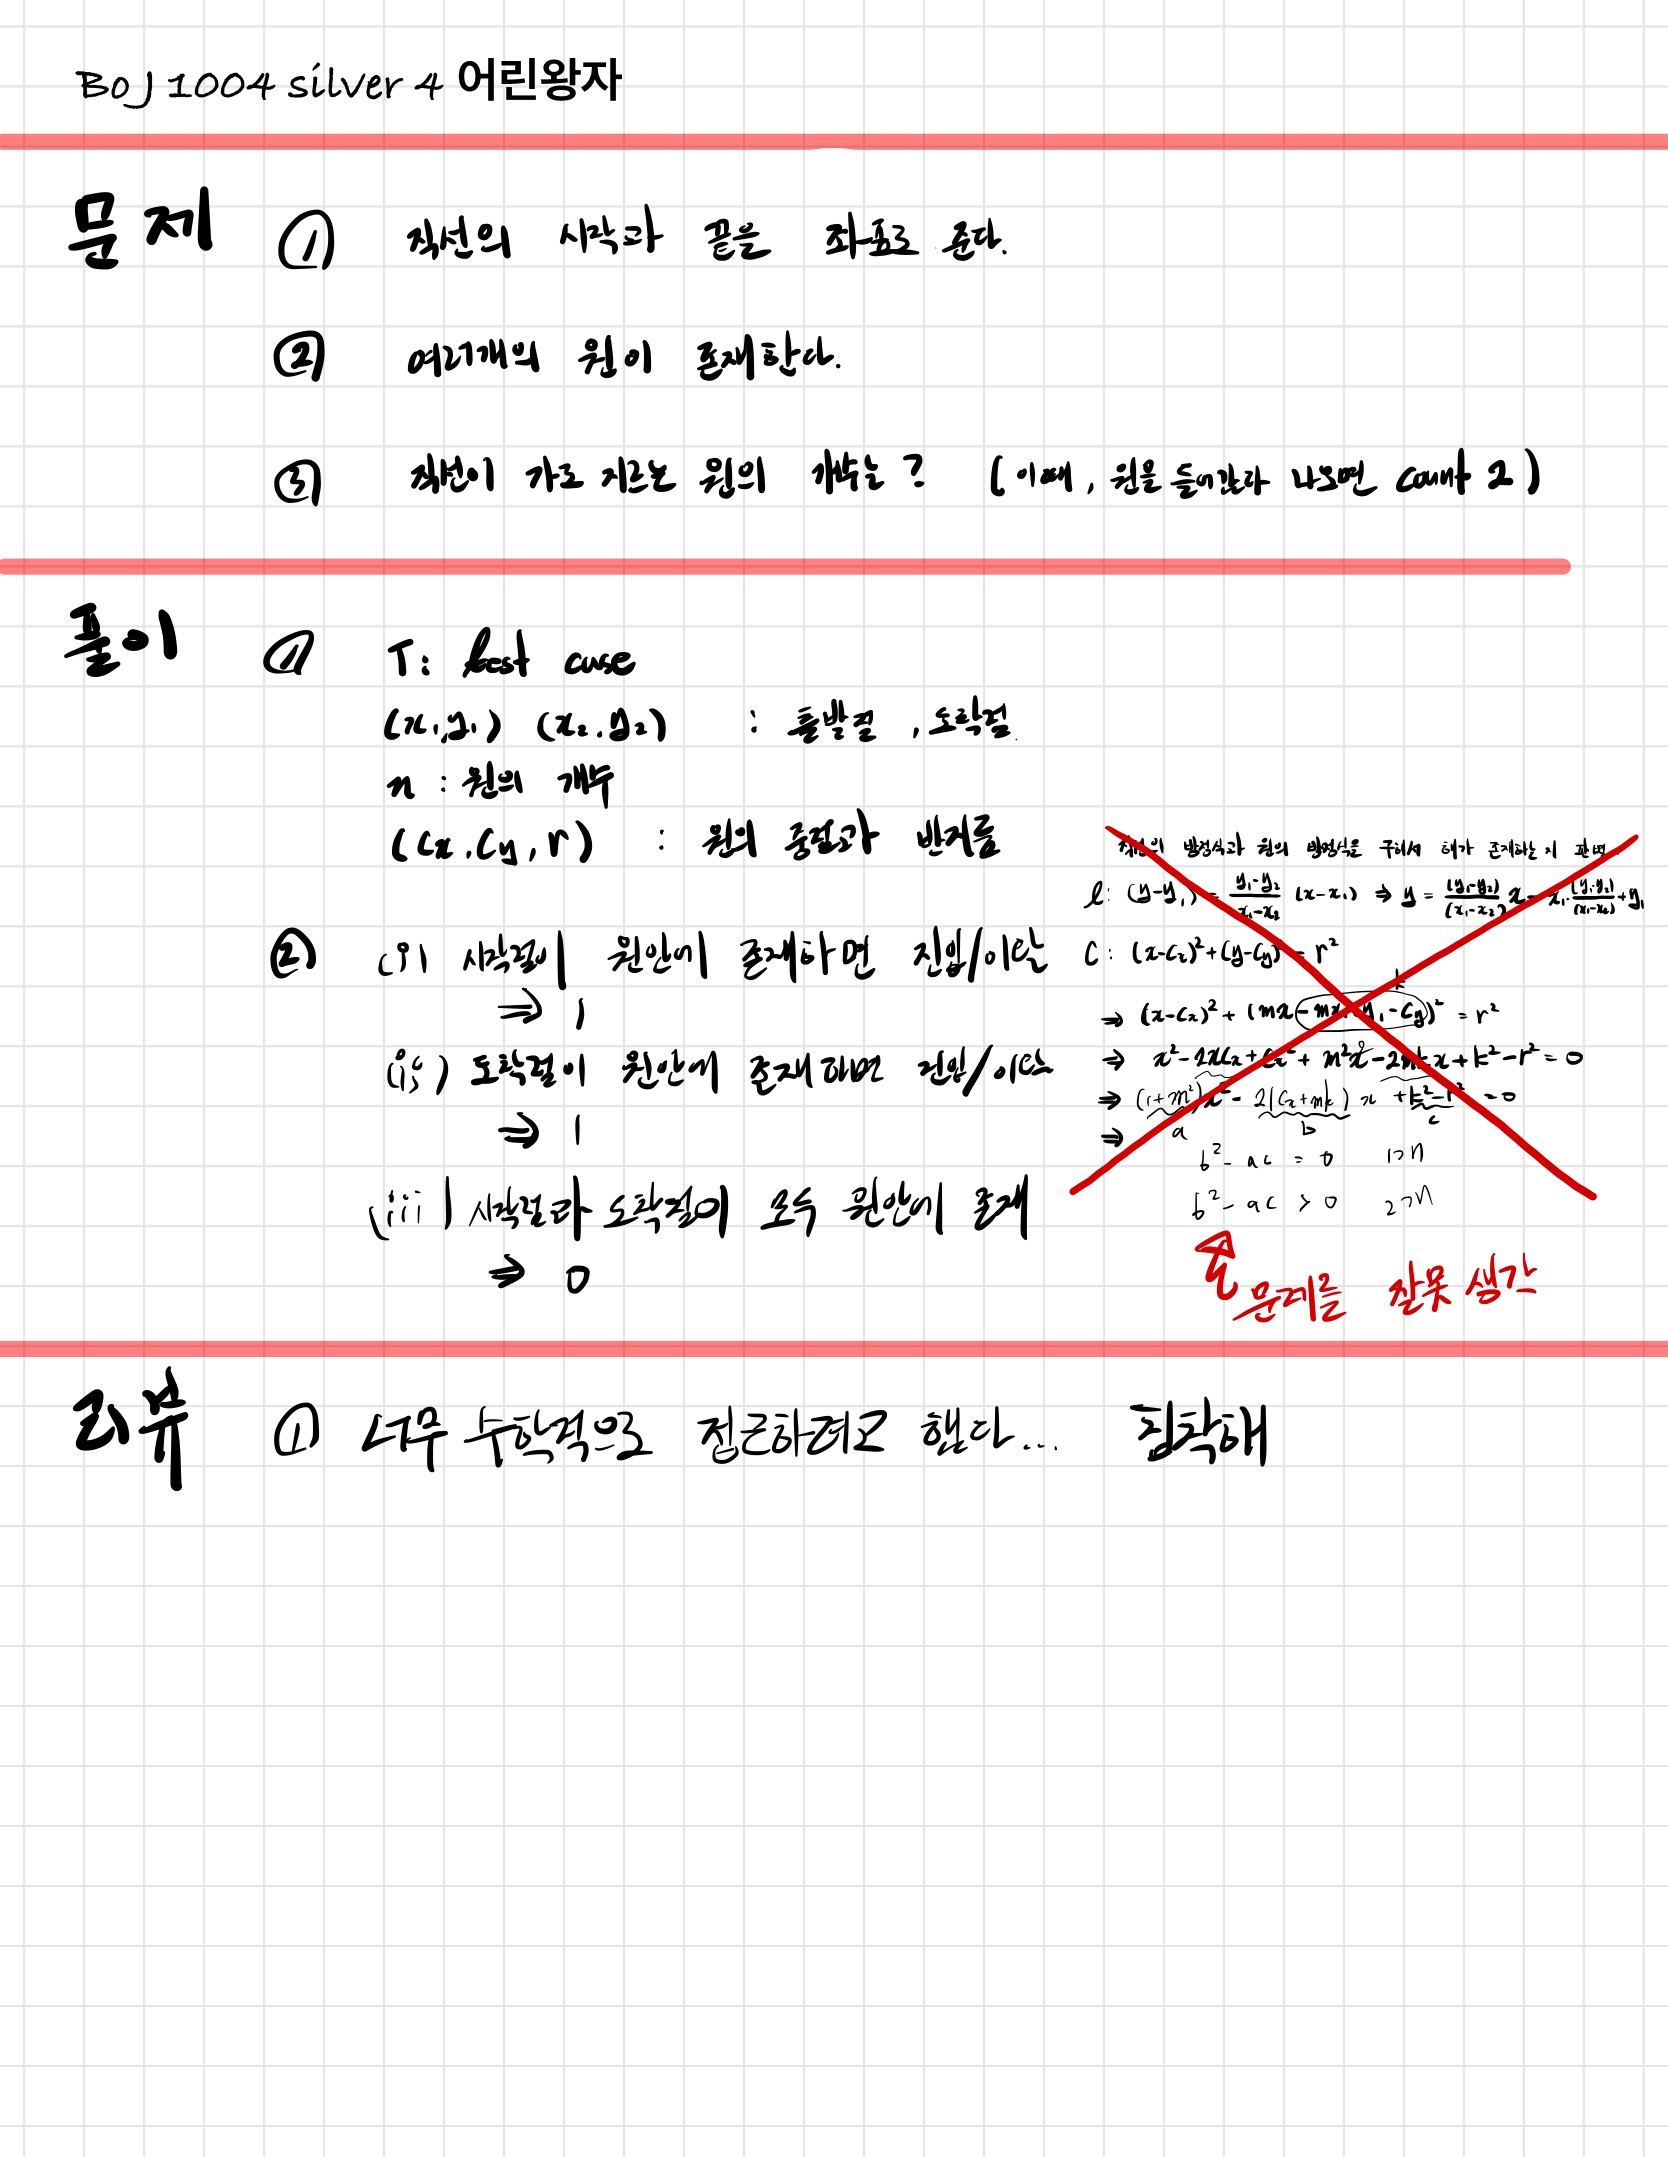 BOJ 1004 silver 4 어린왕자
문제 ① 직선의 시작과 끝을 좌표로 준다.
② 여러개의 원이 존재한다.
③ 직선이 가로 지르는 원의 개수는? (이때, 원을 들어갔다 나오면 count 2)
풀이 ① T: test case
(x₁,y₁) (x₂,y₂) : 출발점, 도착점
n : 원의 개수
(Cx, Cy, r) : 원의 중점과 반지름
② (i) 시작점이 원안에 존재하면 진입/이탈
⇒ 1
(ii) 도착점이 원안에 존재하면 진입/이탈
⇒ 1
(iii) 시작점과 도착점이 모두 원안에 존재
⇒ 0
직선의 방정식과 원의 방정식을 구해서 해가 존재하는지 판별
l: (y-y₁) = (y₁-y₂)/(x₁-x₂) (x-x₁) ⇒ y = (y₁-y₂)/(x₁-x₂) x - x₁·(y₁-y₂)/(x₁-x₂) + y₁
C: (x-Cx)²+(y-Cy)² = r²
k
⇒ (x-Cx)² + (mx-mx₁+y₁-Cy)² = r²
⇒ x²-2xCx+Cx²+m²x²-2mkx+k²-r²=0
⇒ (1+m²)x²-2(Cx+mk)x+k²-r²=0
a b c
⇒
b²-ac = 0 1개
b²-ac > 0 2개
문제를 잘못 생각
리뷰 ① 너무 수학적으로 접근하려고 했다... 침착해